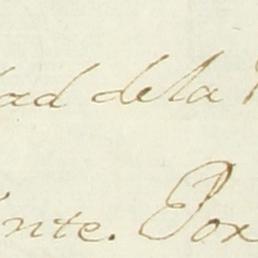 dad de la
ente. Por